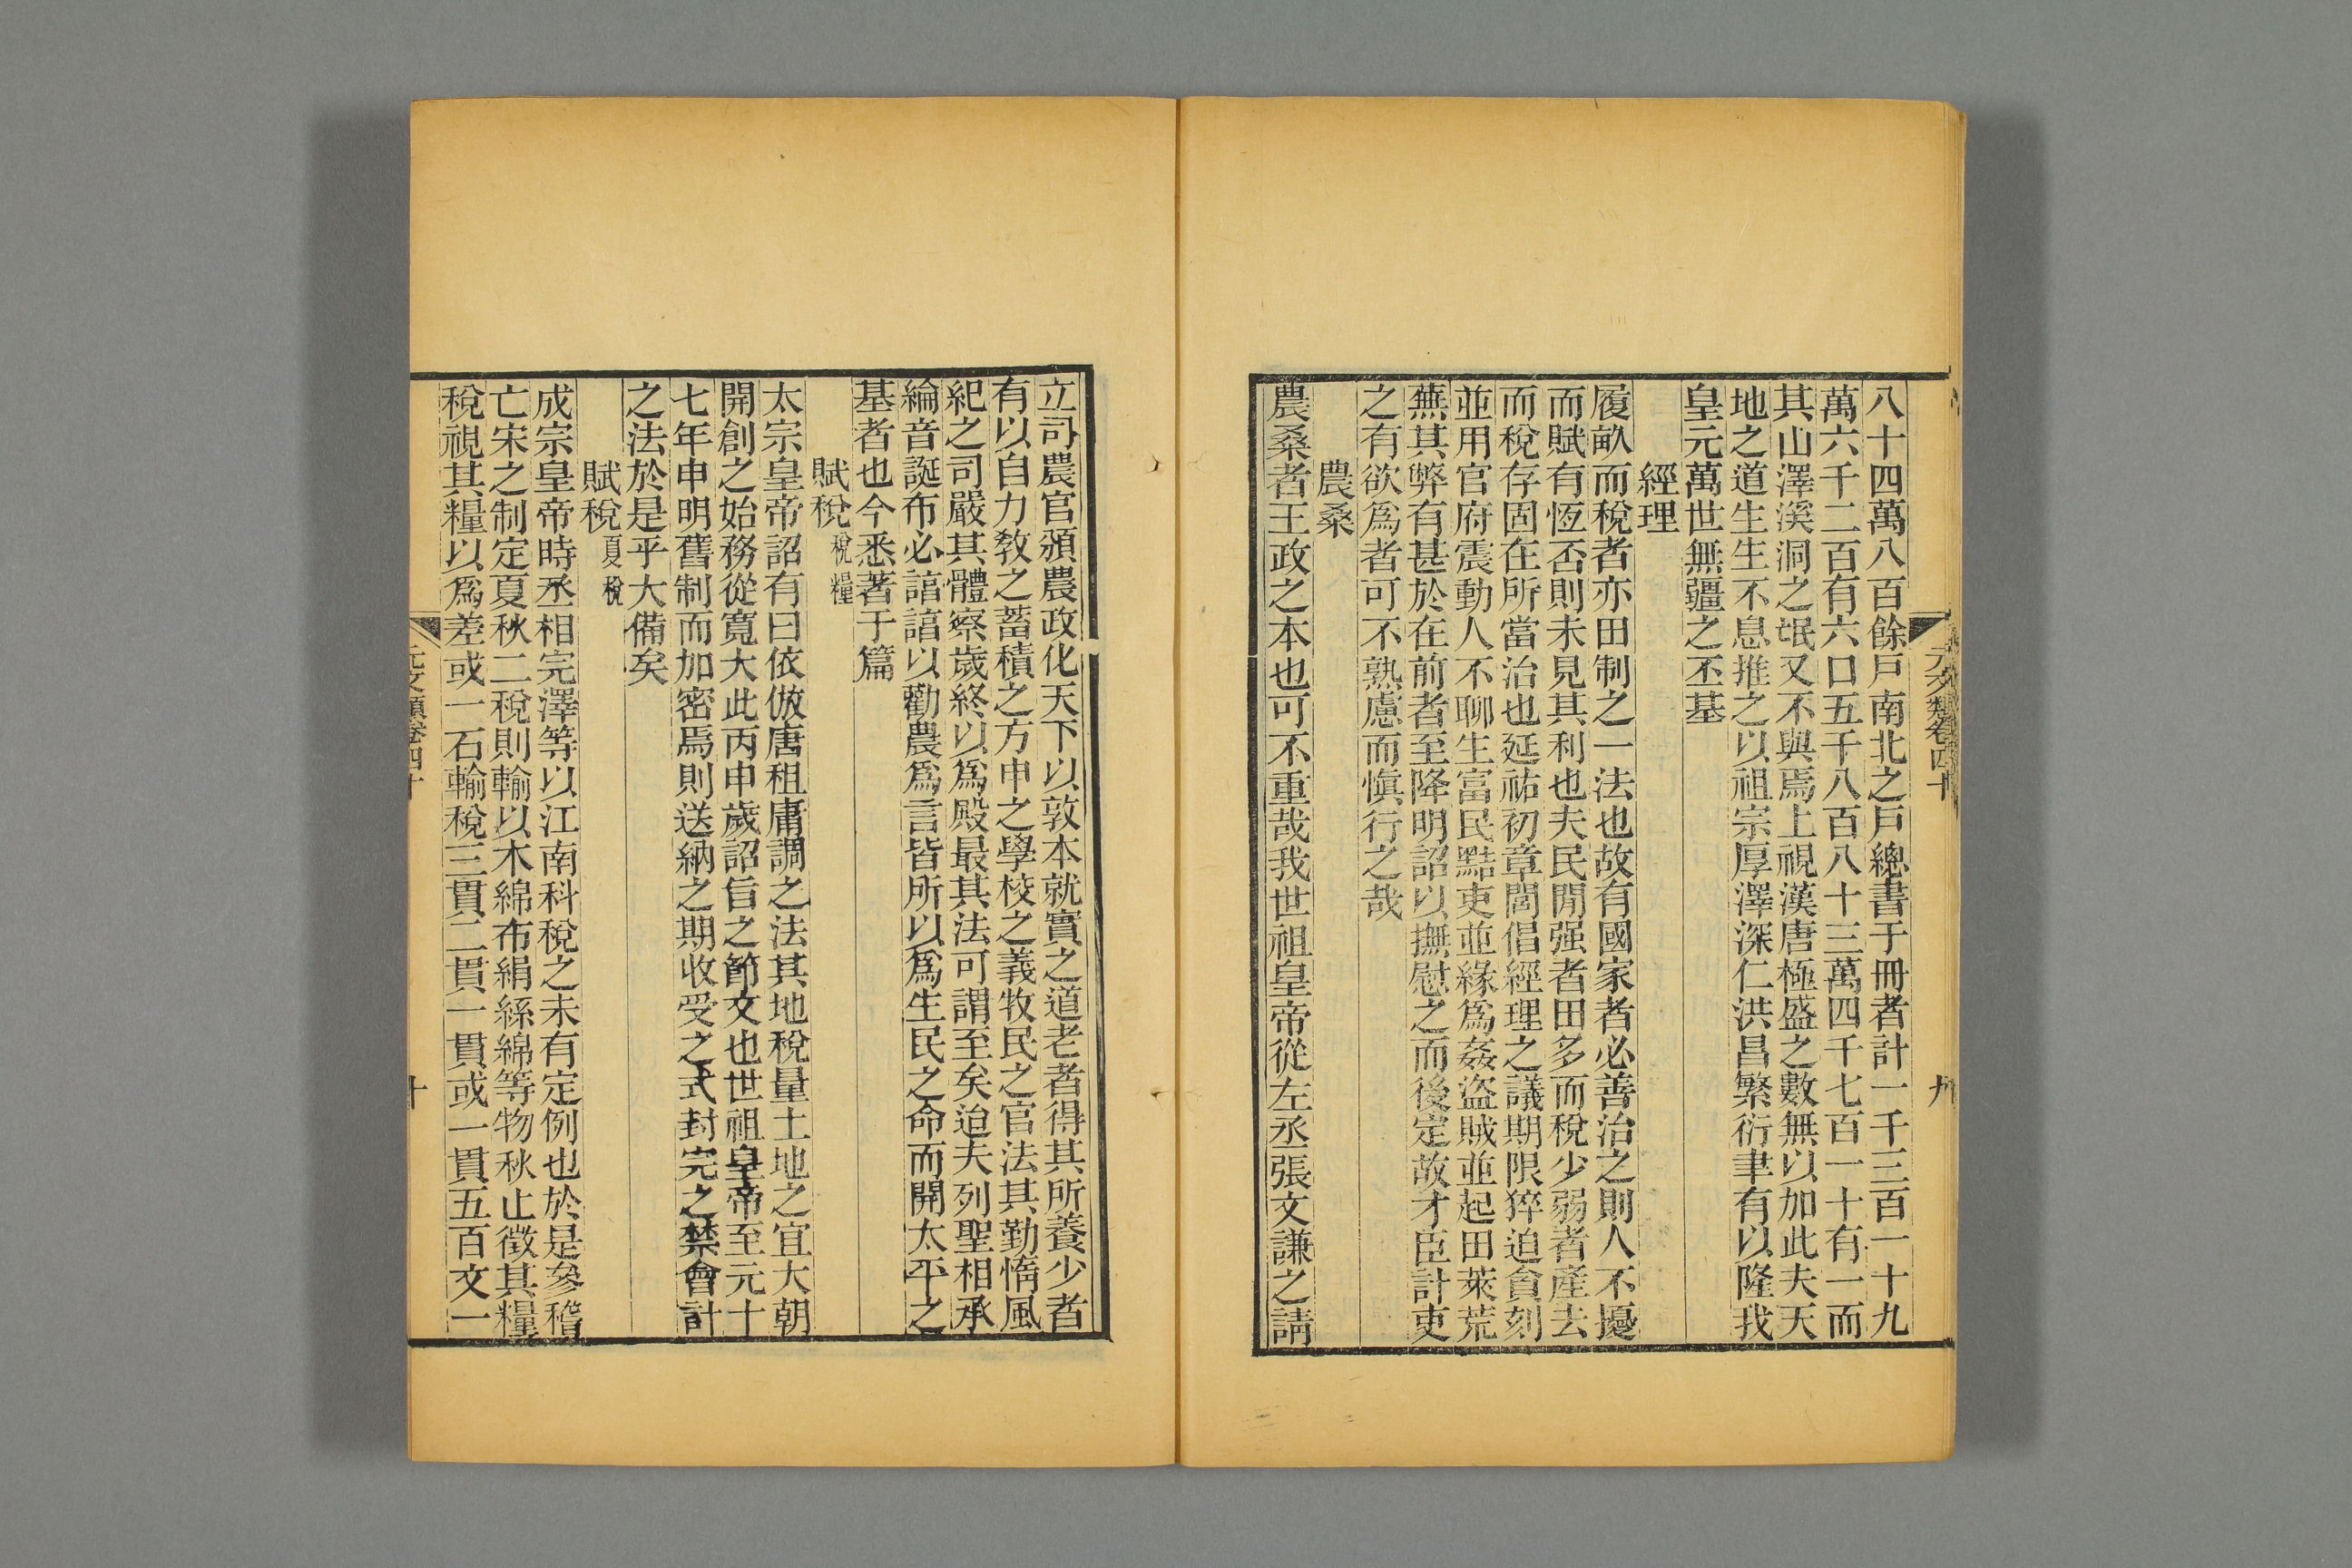 元文類卷四十
九
八十四萬八百餘戸南北之戸總書于冊者計一千三百一十九
萬六千二百有六口五千八百八十三萬四千七百一十有一而
其山澤溪洞之氓又不與焉上視漢唐極盛之數無以加此夫天
地之道生生不息推之以祖宗厚澤深仁洪昌繁衍聿有以隆我
皇元萬世無疆之丕基
經理
履畝而稅者亦田制之一法也故有國家者必善治之則人不擾
而賦有恆否則未見其利也夫民閒强者田多而稅少弱者產去
而稅存固在所當治也延祐初章閭倡經理之議期限猝迫貪刻
並用官府震動人不聊生富民黠吏並緣爲姦盜賊並起田萊荒
蕪其弊有甚於在前者至降明詔以撫慰之而後定故才臣計吏
之有欲爲者可不熟慮而愼行之哉
農桑
農桑者王政之本也可不重哉我世祖皇帝從左丞張文謙之請
立司農官頒農政化天下以敦本就實之道老者得其所養少者
有以自力教之蓄積之方申之學校之義牧民之官法其勤惰風
紀之司嚴其體察歲終以爲殿最其法可謂至矣迨夫列聖相承
綸音誕布必諳諳以勸農爲言皆所以爲生民之命而開太平之
基者也今悉著于篇
賦稅稅糧
太宗皇帝詔有曰依倣唐租庸調之法其地稅量土地之宜大朝
開創之始務從寬大此丙申歲詔旨之節文也世祖皇帝至元十
七年申明舊制而加密焉則送納之期收受之式封完之禁會計
之法於是乎大備矣
賦稅夏稅
成宗皇帝時丞相完澤等以江南科稅之未有定例也於是參稽
亡宋之制定夏秋二稅則輸以木綿布絹絲綿等物秋止徵其糧
稅視其糧以爲差或一石輸稅三貫二貫一貫或一貫五百文一
元文類卷四十
十